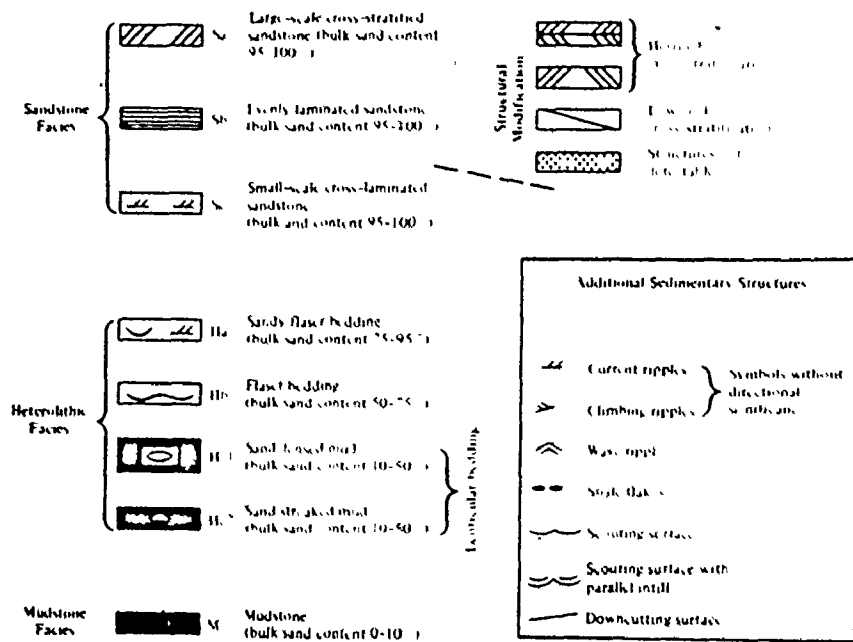 Sandstone
Facies
Sa
Large-scale cross-stratified
sandstone (bulk sand content
95-100
Sb
Evenly-laminated sandstone
(bulk sand content 95-100
Sc
Small-scale cross-laminated
sandstone
(bulk sand content 95-100
Structural
Modification
Structures
Heterolithic
Facies
Ha
Sandy flaser bedding
(bulk sand content 75-95
Hb
Flaser bedding
(bulk sand content 50-75
Sand-lensed mud
(bulk sand content 10-50
Sand streaked mud
(bulk sand content 10-50
Lenticular bedding
Mudstone
Facies
M
Mudstone
(bulk sand content 0-10
Additional Sedimentary Structures
Current ripples
Climbing ripples
Symbols without
directional
Wave
flakes
Scouring surface
Scouring surface with
parallel infill
Downcutting surface